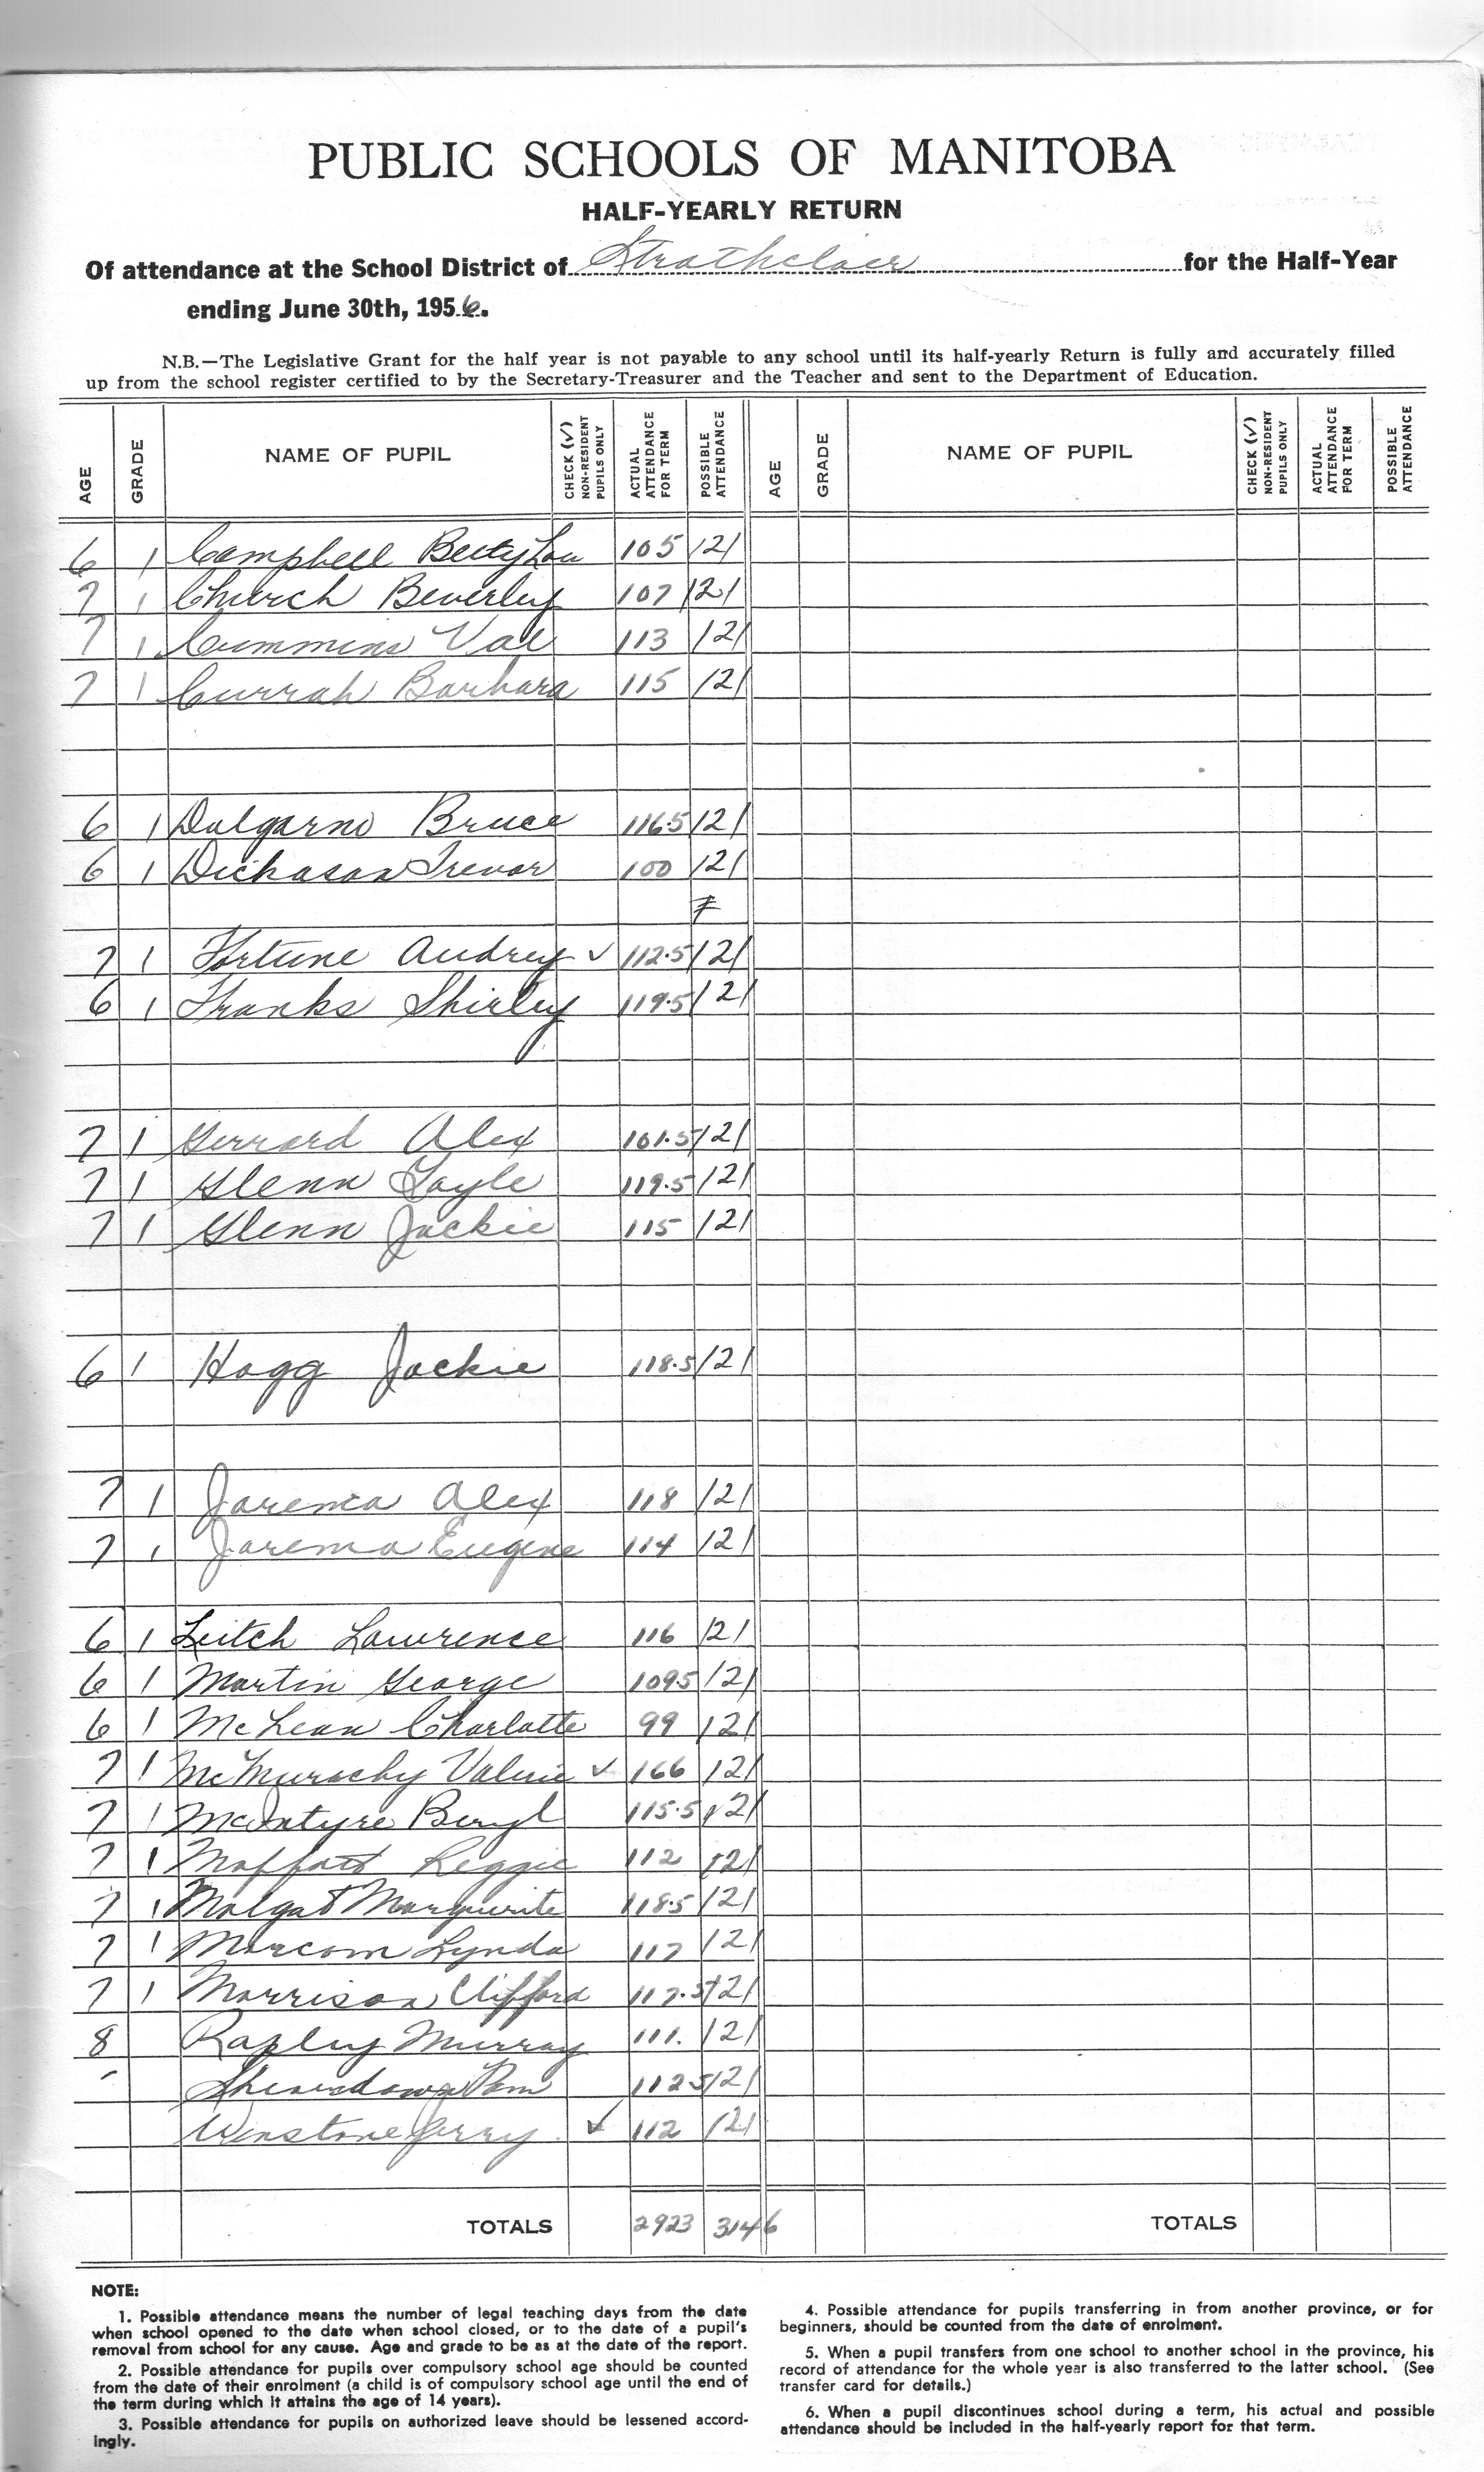 PUBLIC SCHOOLS OF MANITOBA
HALF-YEARLY RETURN
Of attendance at the School District of Strathclair for the Half-Year
ending June 30th, 1956.
N.B.—The Legislative Grant for the half year is not payable to any school until its half-yearly Return is fully and accurately filled
up from the school register certified to by the Secretary-Treasurer and the Teacher and sent to the Department of Education.
AGE GRADE NAME OF PUPIL CHECK (✓) NON-RESIDENT PUPILS ONLY ACTUAL ATTENDANCE FOR TERM POSSIBLE ATTENDANCE AGE GRADE NAME OF PUPIL CHECK (✓) NON-RESIDENT PUPILS ONLY ACTUAL ATTENDANCE FOR TERM POSSIBLE ATTENDANCE
6 1 Campbell Betty Lou 105 121
7 1 Church Beverley 107 121
7 1 Cummins Val 113 121
7 1 Currah Barbara 115 121
6 1 Dalgarno Bruce 116.5 121
6 1 Dickason Trevor 100 121
7 1 Fortune Audrey ✓ 112.5 121
6 1 Franks Shirley 119.5 121
7 1 Gerrard Alex 101.5 121
7 1 Glenn Gayle 119.5 121
7 1 Glenn Jackie 115 121
6 1 Hogg Jackie 118.5 121
7 1 Jarema Alex 118 121
7 1 Jarema Eugene 114 121
6 1 Leitch Lawrence 116 121
6 1 Martin George 109.5 121
6 1 McLean Charlotte 99 121
7 1 McMurachy Valerie ✓ 166 121
7 1 McIntyre Beryl 115.5 121
7 1 Moffatt Reggie 112 121
7 1 Molgat Marguerite 118.5 121
7 1 Morcom Lynda 117 121
7 1 Morrison Clifford 117.5 121
8 Rapley Murray 111. 121
Sheardown Pam 112.5 121
Winstone Jerry ✓ 112 121
TOTALS 2923 3146 TOTALS
NOTE:
1. Possible attendance means the number of legal teaching days from the date
when school opened to the date when school closed, or to the date of a pupil's
removal from school for any cause. Age and grade to be as at the date of the report.
2. Possible attendance for pupils over compulsory school age should be counted
from the date of their enrolment (a child is of compulsory school age until the end of
the term during which it attains the age of 14 years).
3. Possible attendance for pupils on authorized leave should be lessened accord-
ingly.
4. Possible attendance for pupils transferring in from another province, or for
beginners, should be counted from the date of enrolment.
5. When a pupil transfers from one school to another school in the province, his
record of attendance for the whole year is also transferred to the latter school. (See
transfer card for details.)
6. When a pupil discontinues school during a term, his actual and possible
attendance should be included in the half-yearly report for that term.